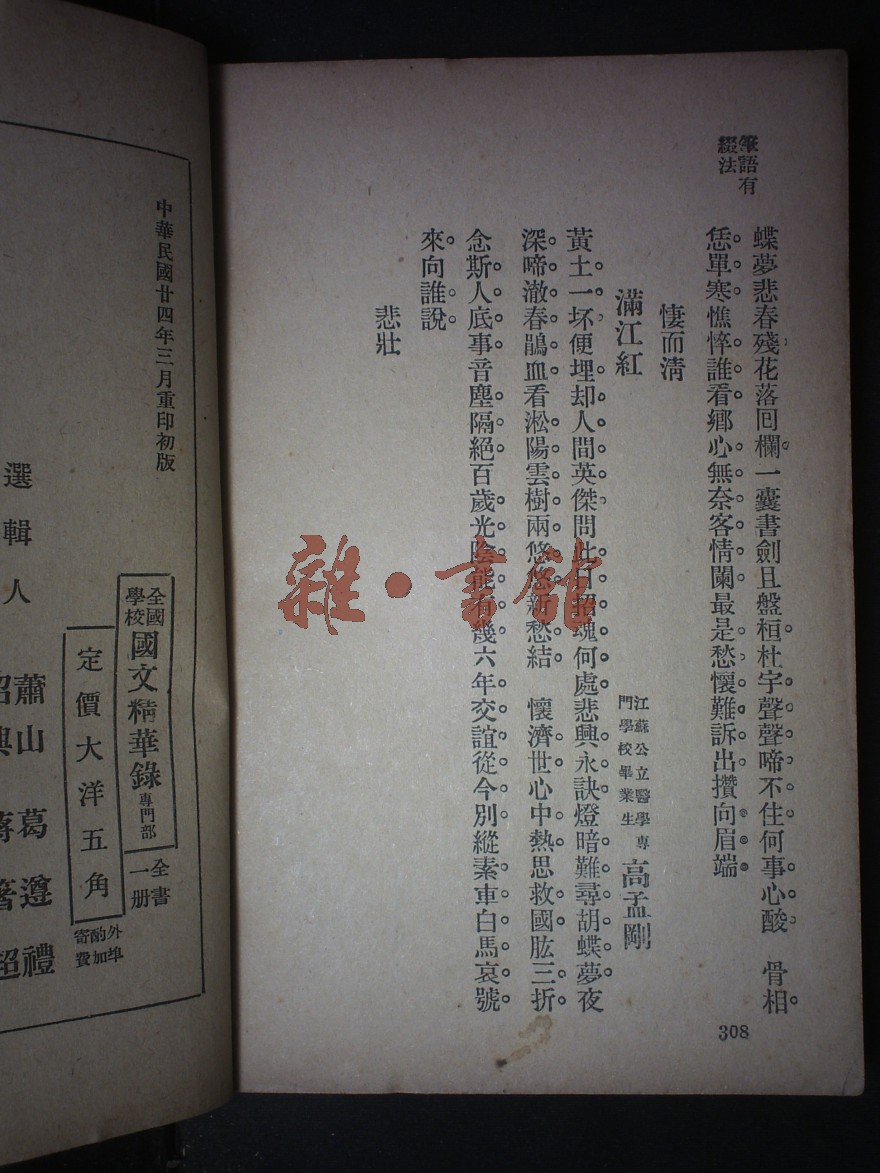 筆語有
綴法
蝶夢悲春殘花落囘欄一囊書劍且盤桓杜宇聲聲啼不住何事心酸　骨相
恁單寒憔悴誰看鄉心無奈客情闌最是愁懷難訴出攢向眉端
悽而淸
滿江紅
江蘇公立醫學專
門學校畢業生
高孟剛
黃土一坏便埋却人間英傑問此日招魂何處悲興永訣燈暗難尋胡蝶夢夜
深啼澈春鵑血看淞陽雲樹兩悠悠新愁結　懷濟世心中熱思救國肱三折
念斯人底事音塵隔絕百歲光陰能有幾六年交誼從今別縱素車白馬哀號
來向誰說
悲壯
308
雜·書館
中華民國廿四年三月重印初版
全國
學校
國文精華錄
專門部
全書
一册
定價大洋五角
外埠
酌加
寄費
選輯人
蕭山葛遵禮